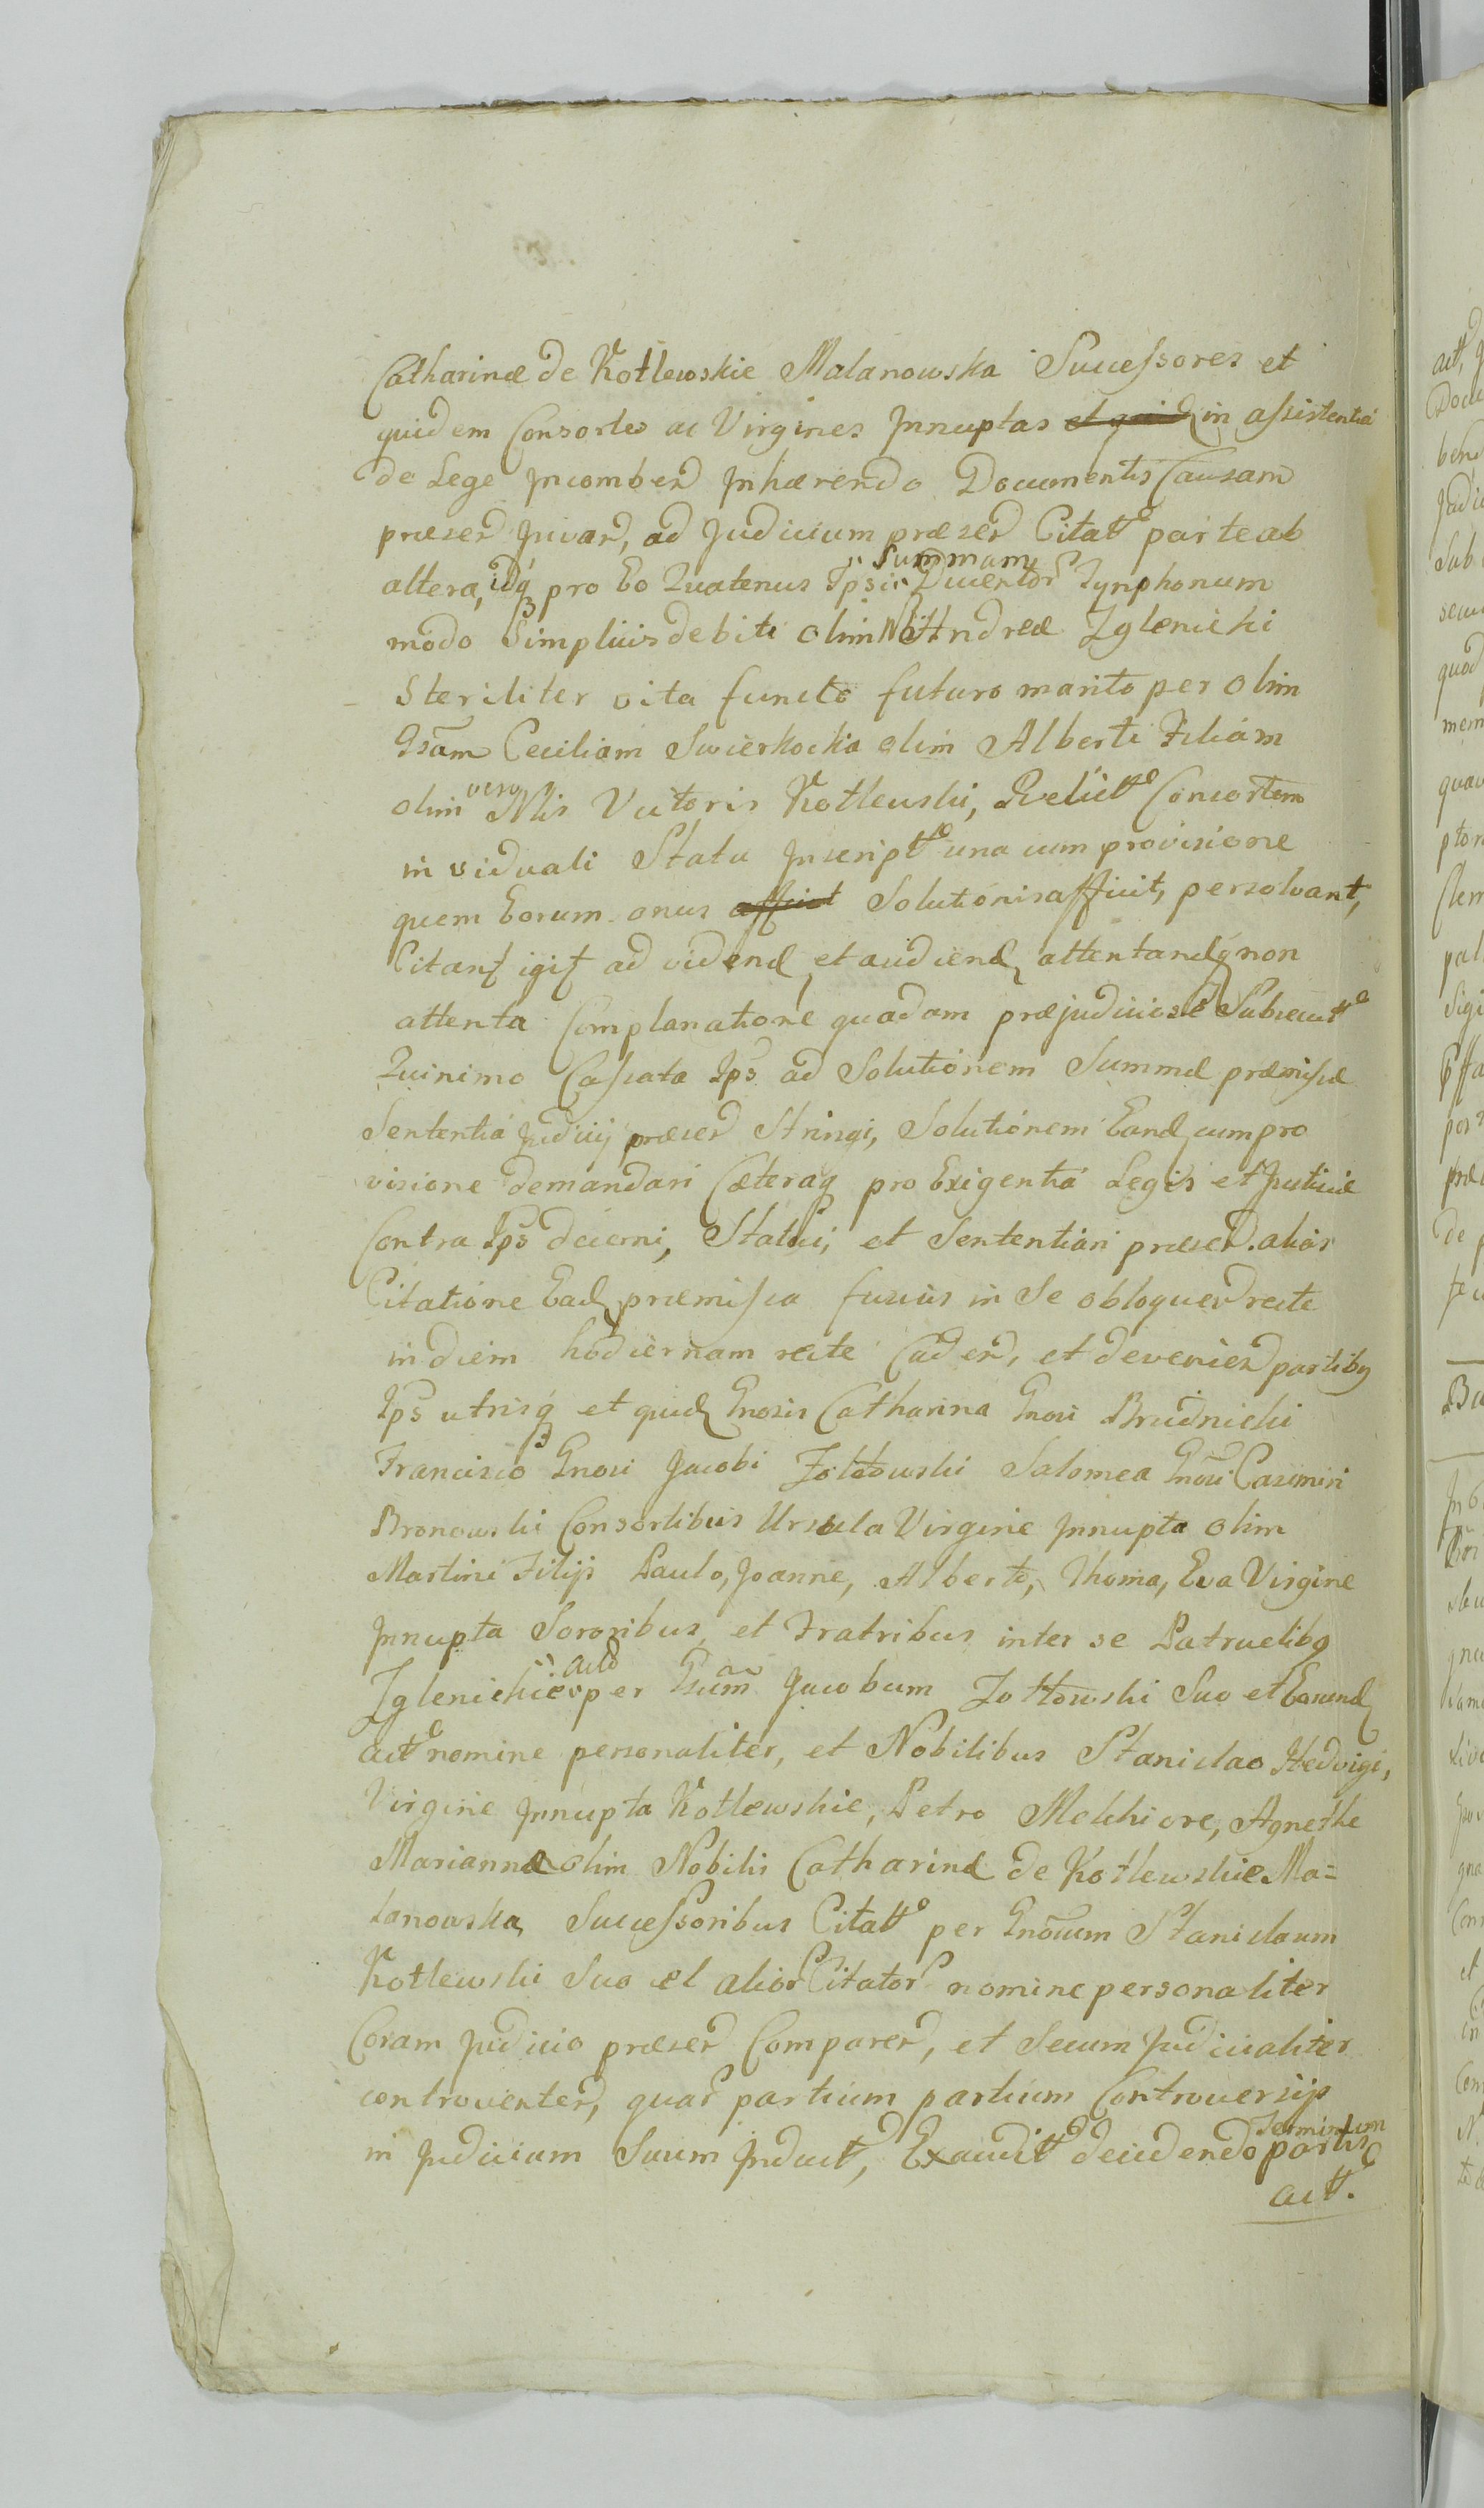 Catharinæ de Kotlewskie Malanowska Successores et
quidem Consortes ac Virgines Innuptas et quid in assistentia
de Lege Incomben Inhærendo Documentis Causam
præsen Juvan, ad Judicium præsen Citatt parte ab
altera, idq pro Eo Quatenus Ipsi Summam Ducentor Tynphonum
modo Simplicis debiti olim Andreæ Iglenicki
Steriliter vita functo futuro marito per olim
Gsam Ceciliam Swierkocka olim Alberti Filiam
olim vero Nlis Victoris Kotlewski, Relictt Consortem
in viduali Statu Inscriptt una cum provisione
quem Eorum onus afficit Solutionis afficit, persolvant,
Citant igit ad vidend et audiend attentandq non
attenta Complanatione quadam præjudiciose Subsecutt
Quinimo Cassata Ips ad Solutionem Summæ præmissæ
Sententia Judicij præsen Stringi, Solutionem Eand cum pro
visione demandari Cæteraq pro Exigentia Legis et Justiciæ
Contra Ips decerni, Statui, et Sententiari præsen. alias
Citatione Ead præmissa fusius in Se obloquen recte
in diem hodiernam recte Caden, et devenien partibq
Ips utrisq et quid Gnosis Catharina Gnosi Brudnicki
Francisco Gnosi Jacobi Zołtowski Salomea Gnosi Casimiri
Bronowski Consortibus Ursula Virgine Innupta olim
Martini Filijs Paulo, Joanne, Alberto, Thoma, Eva Virgine
Innupta Sororibus, et Fratribus inter se Patruelibq
Iglenickie act per Gsum Jacobum Zołtowski Suo et Eorund
actt nomine personaliter, et Nobilibus Stanislao Hedvigi,
Virgine Innupta Kotlewskie, Petro Melchiore, Agnethe
Marianna olim Nobilis Catharinæ de Kotlewskie Ma=
lanowska Successoribus Citatt per Gnosum Stanislaum
Kotlewski Suo et alior Citator nomine personaliter
Coram Judicio præsen Comparen, et Secum Judicialiter
controverten, quar partium partium Controversijs
in Judicium Suum Induct, Exauditt decidendo Terminum partis
actt.